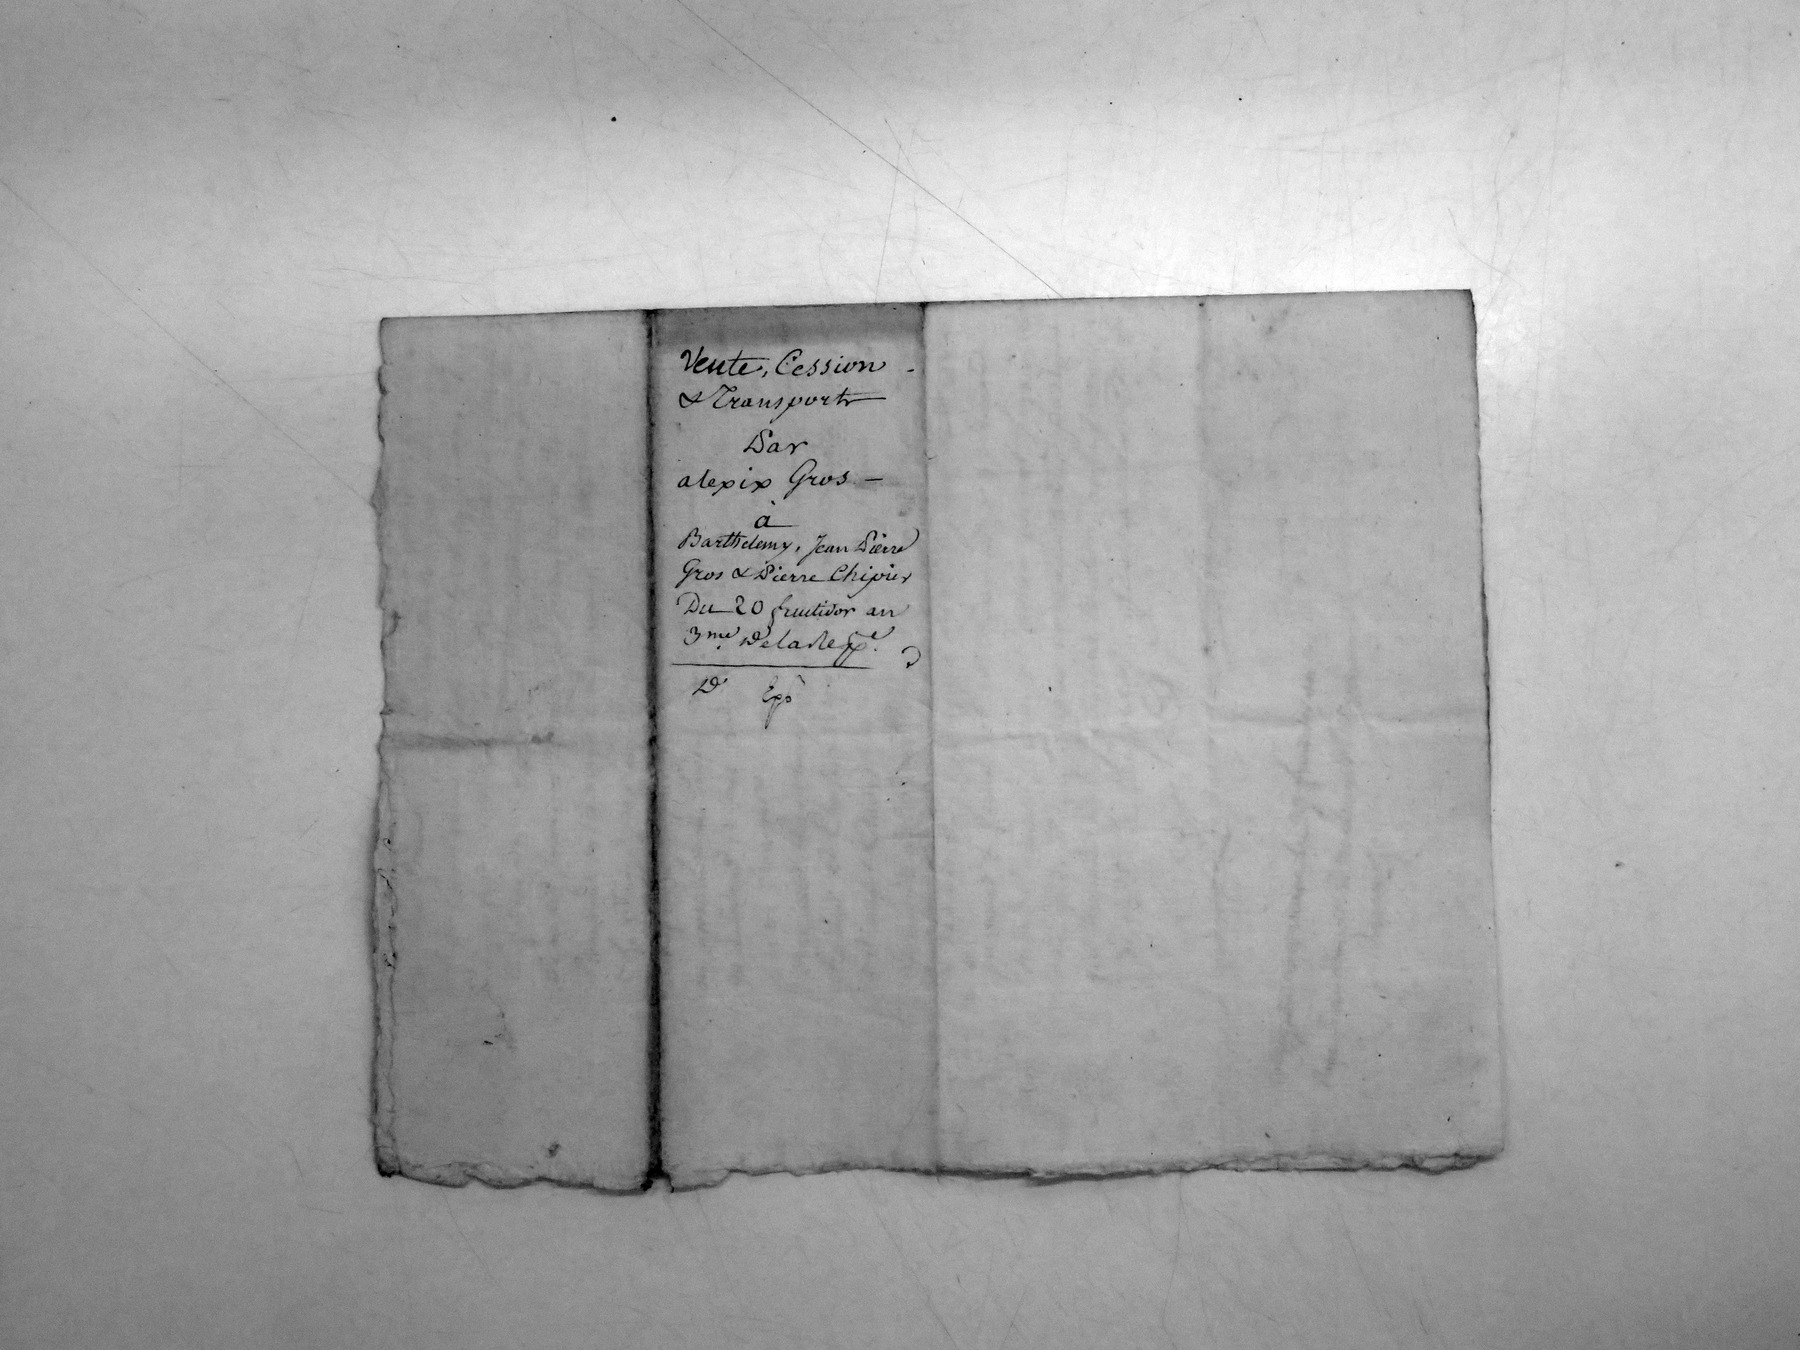 Vente, Cession
& Transport
Par
alexix Gros —
à
Barthelemy, Jean Pierre
Gros & Pierre Chipier
Du 20 fructidor an
3me. De la Rep.e
D Epo